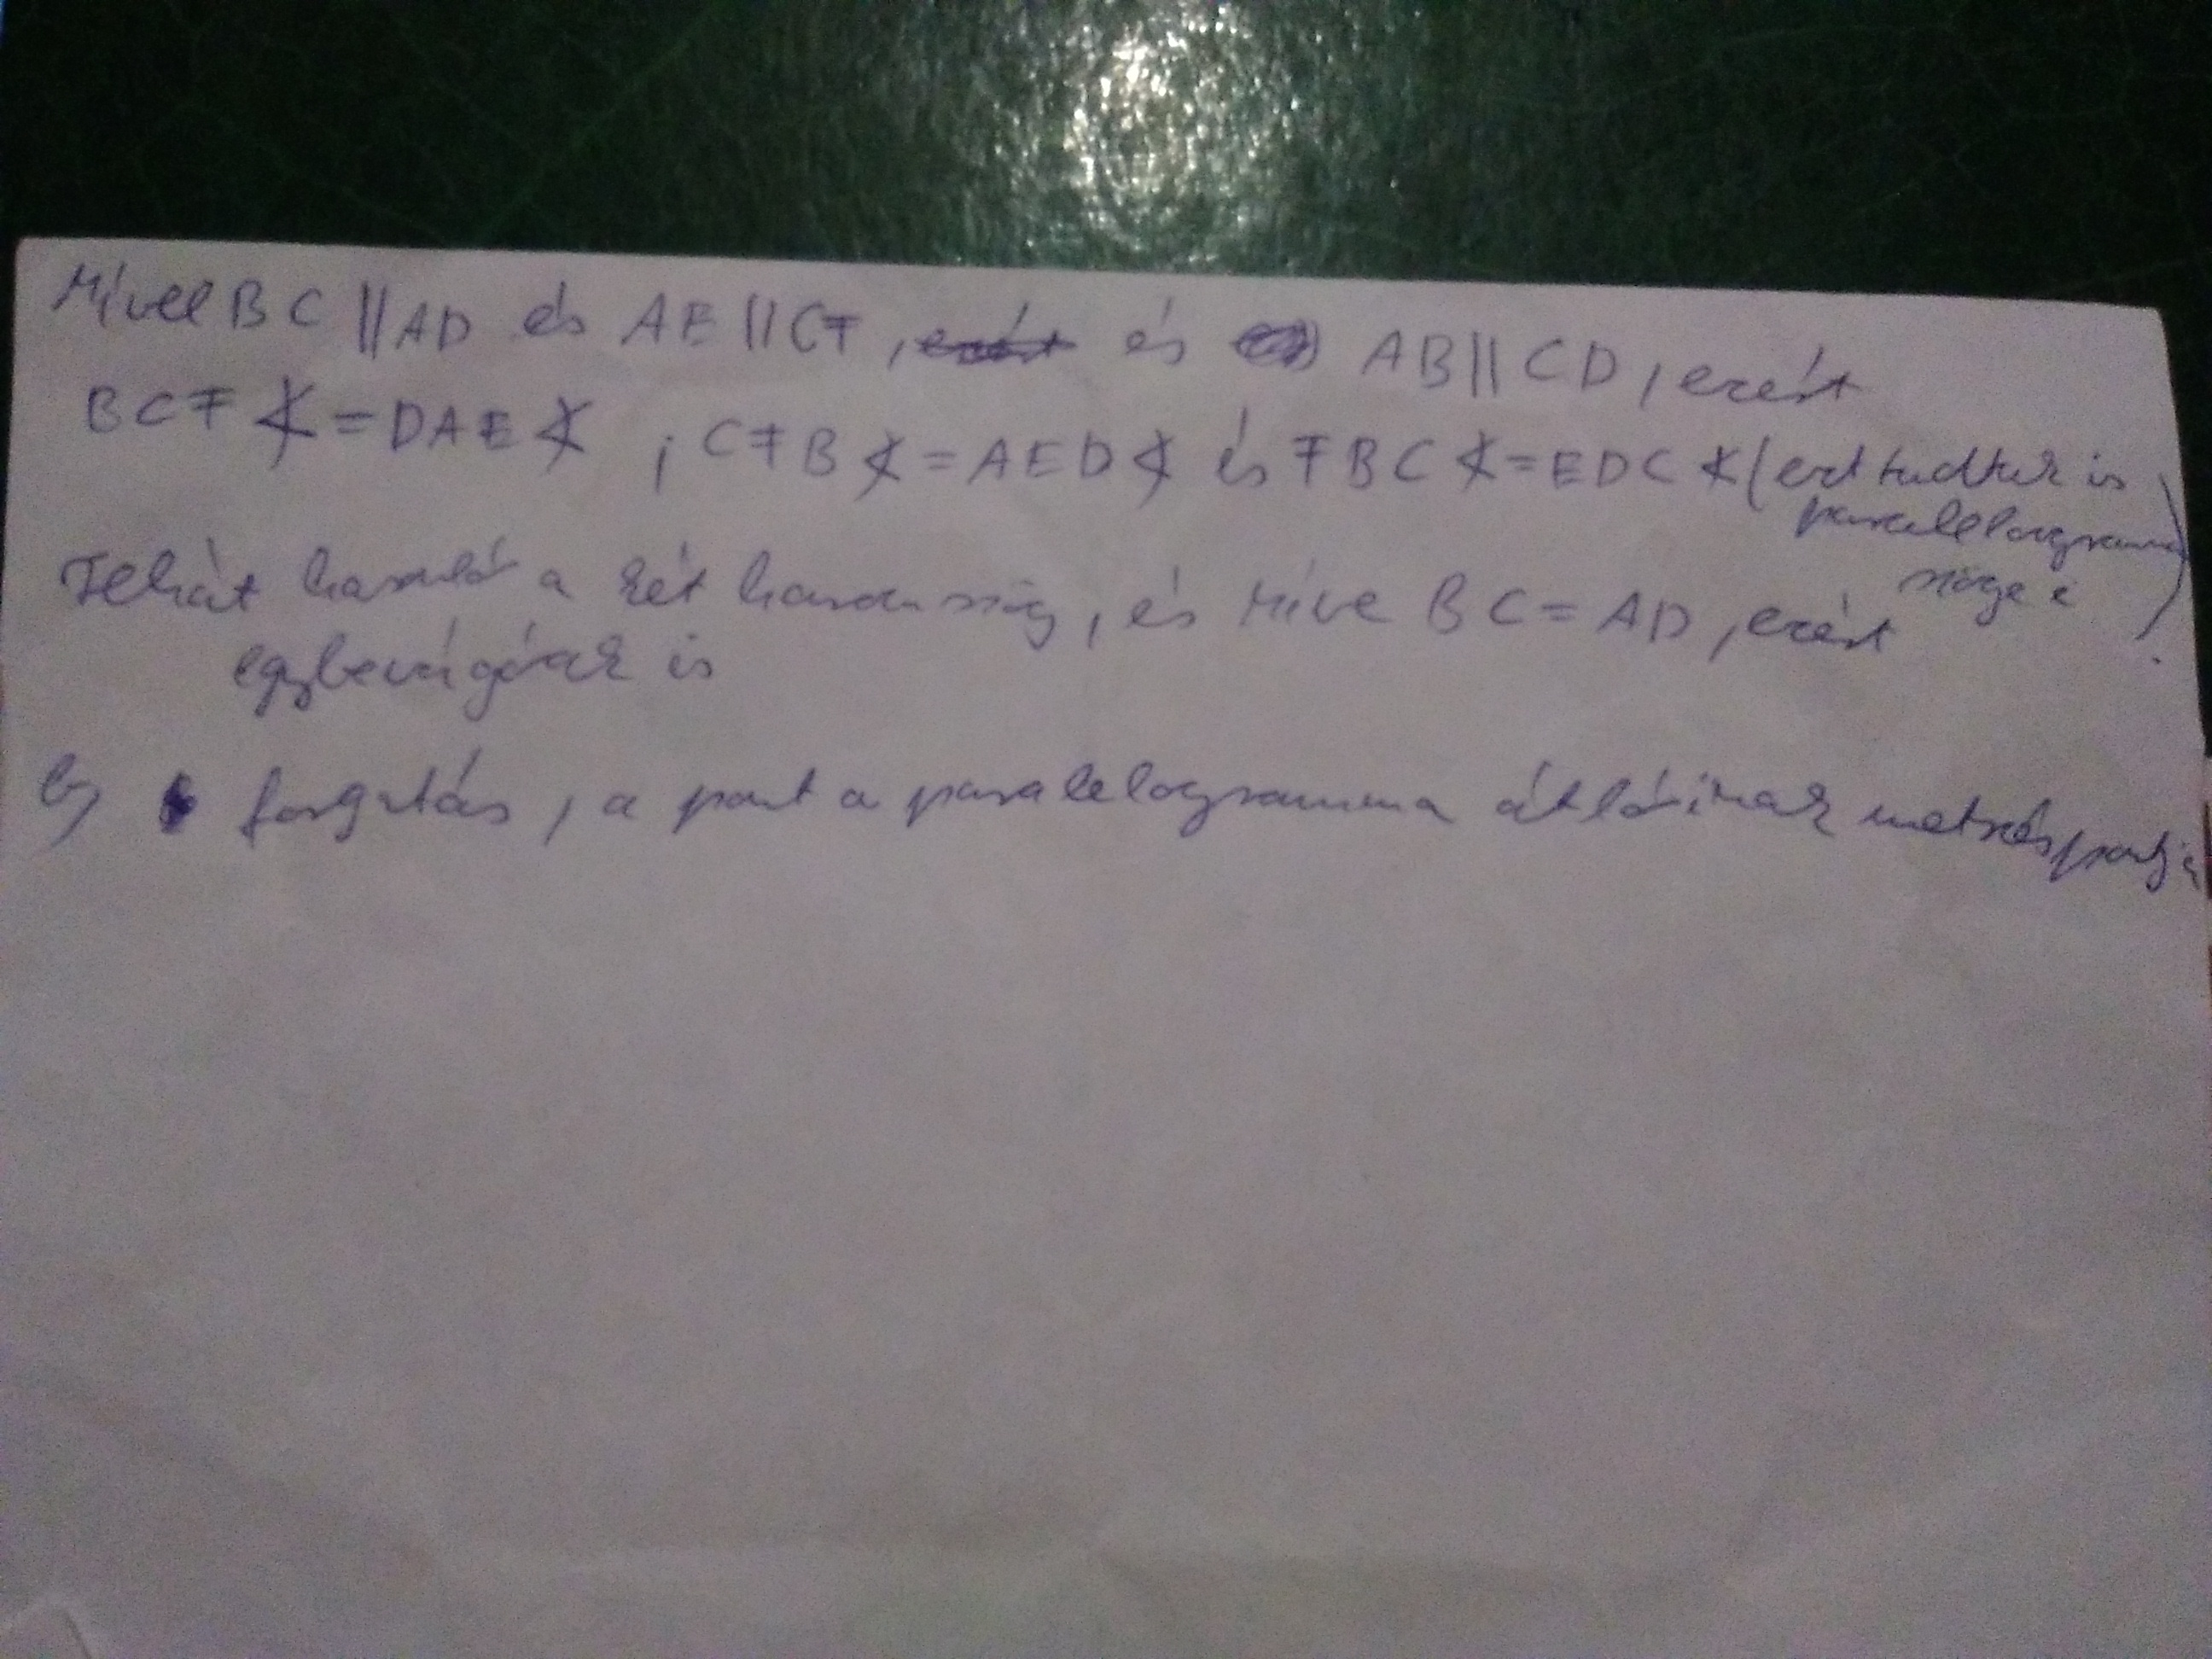 Mivel BC || AD és AE || CF, és AB || CD, ezért
BCF∢ = DAE∢, CFB∢ = AED∢ és FBC∢ = EDC∢ (ezt tudtuk is
paralelogramma
szöge i)
Tehát hasonló a két háromszög, és Mive BC = AD, ezért
egybevágóak is
b, forgatás, a pont a paralelogramma átlóinak metszéspontja